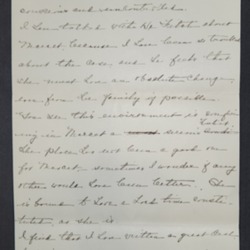 conscious and
I have talked with Dr. about
Margaret because I have been so troubled
about the case, and he feels that
she must have an absolute change
even from the family if possible.
You see this environment is
ing in Margaret a
The place has not been a good one
for Margaret, sometimes I wonder if any
other would have been better. She
is bound to have a hard time
as she is
I find that I have written a great deal